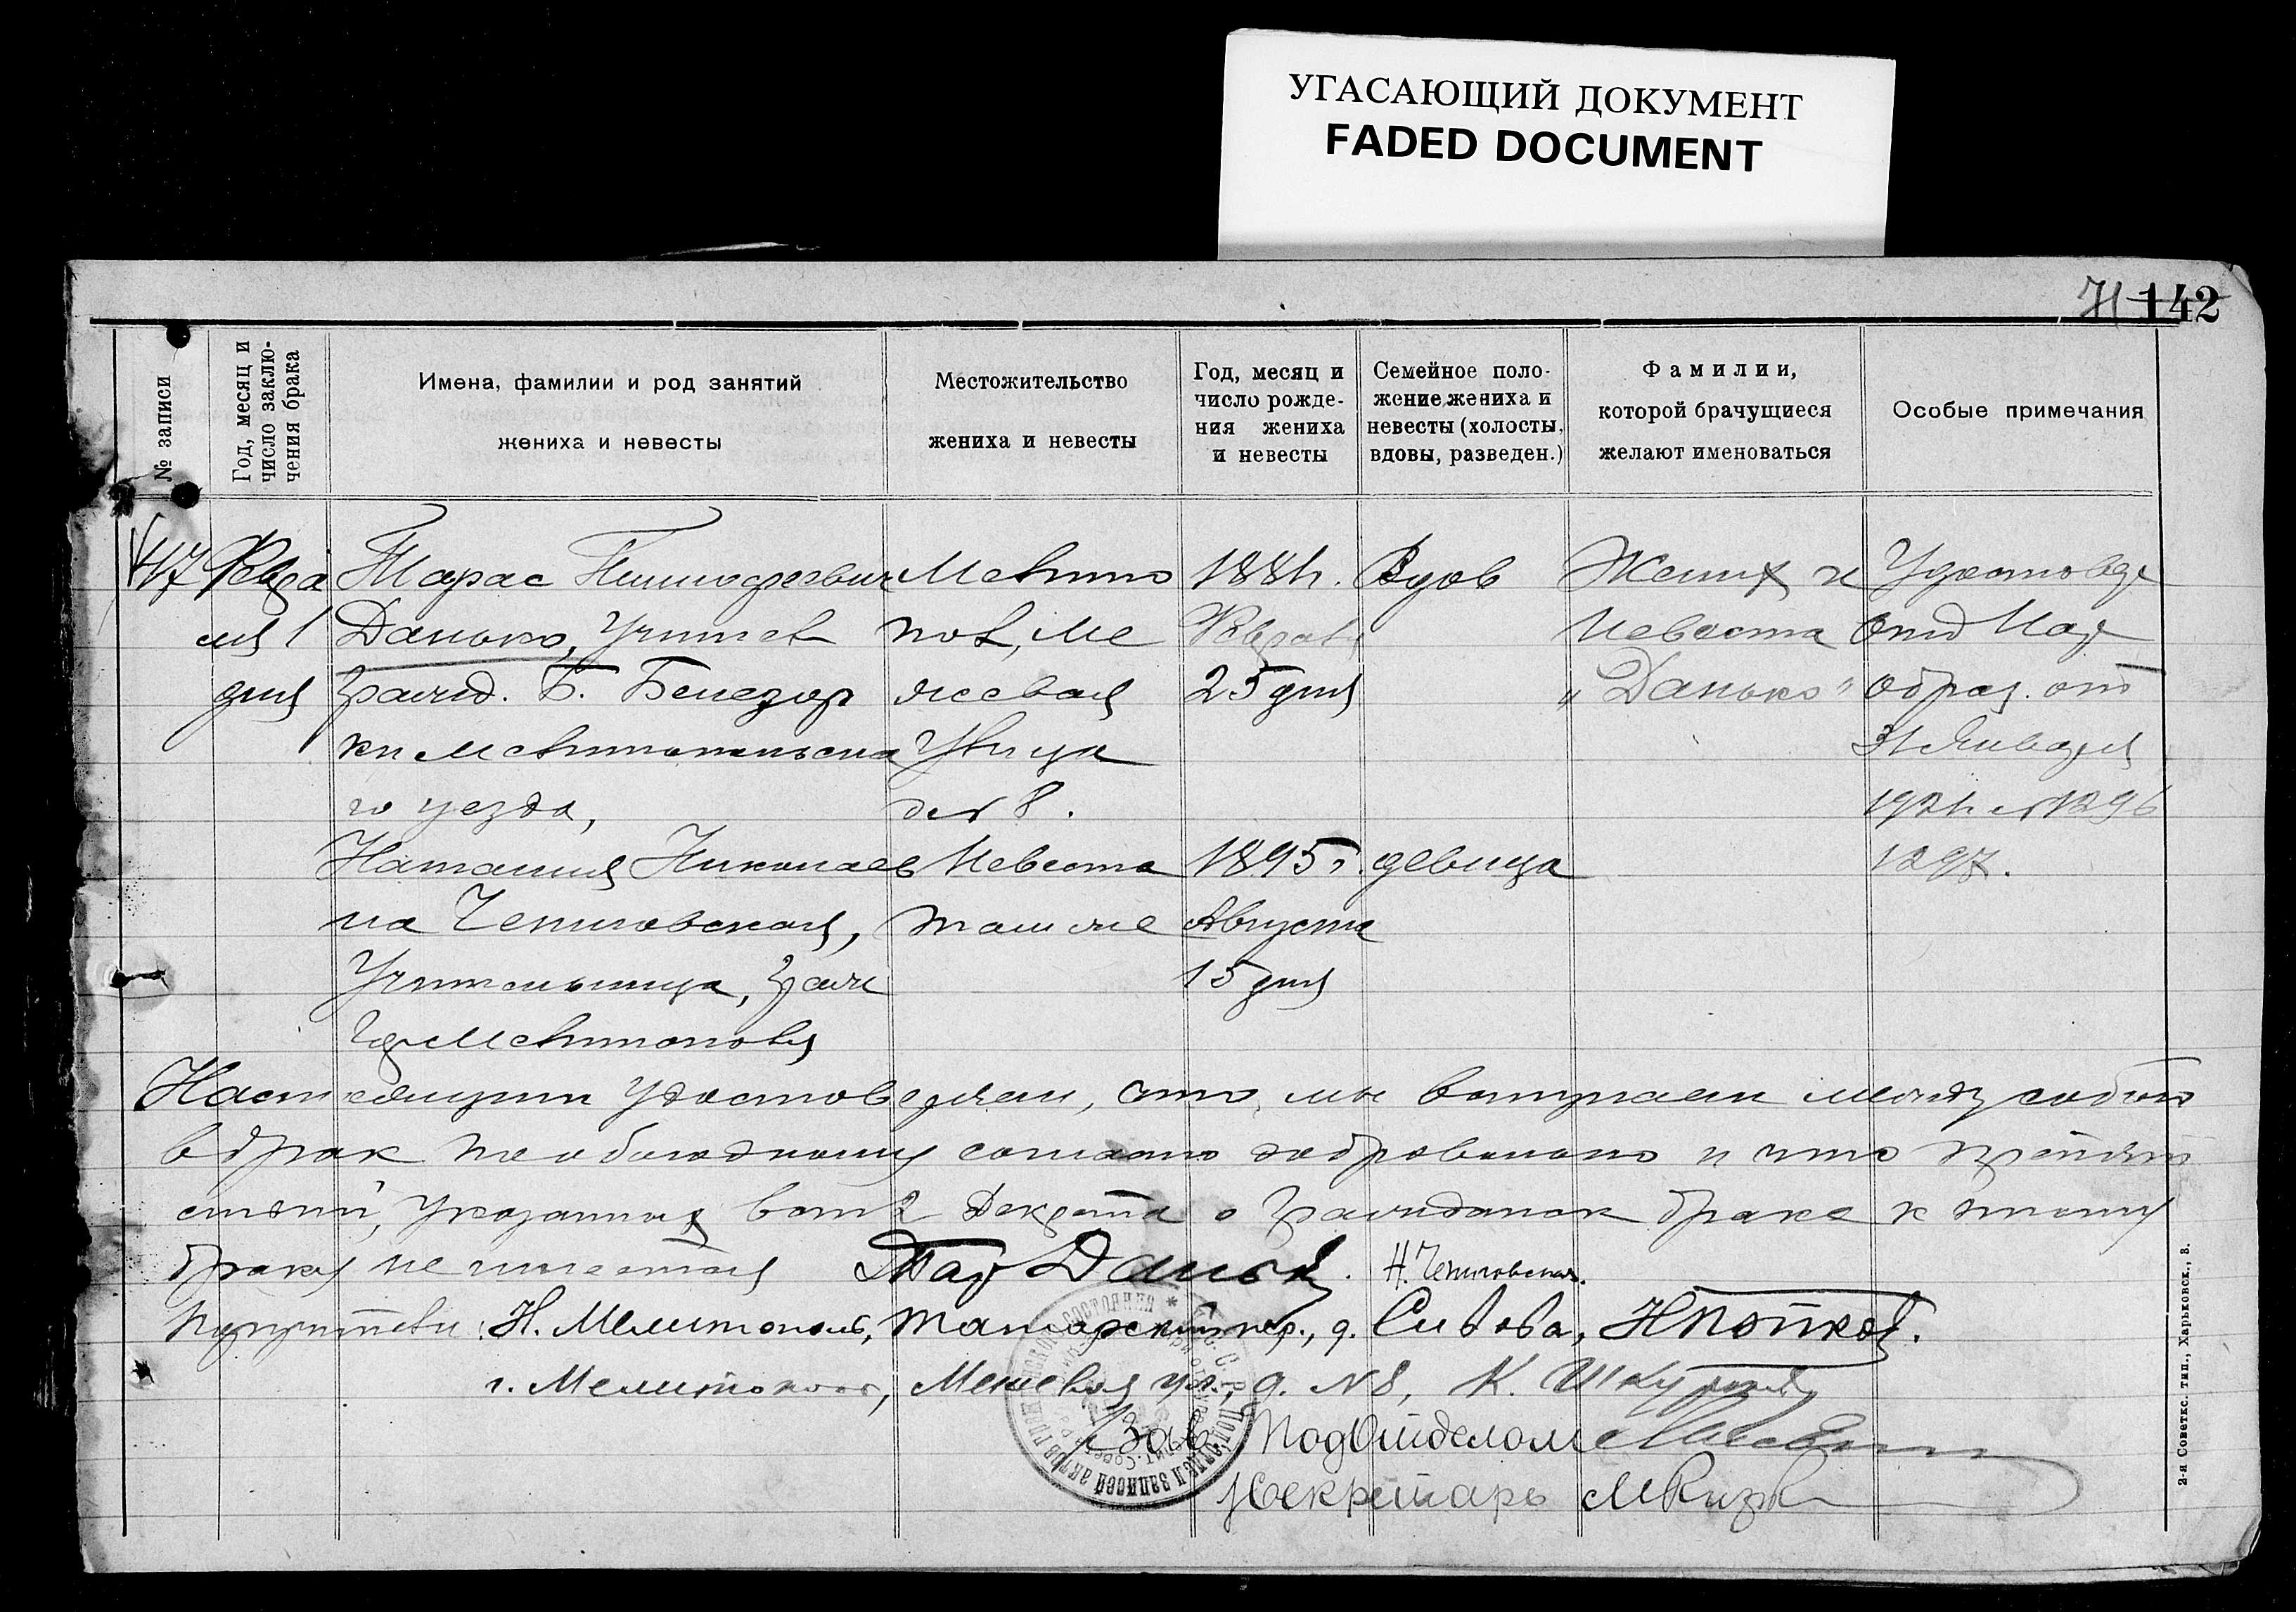 УГАСАЮЩИЙ ДОКУМЕНТ
FADED DOCUMENT
71 142
№ записи
Год, месяц и число заклю-
чения брака
Имена, фамилии и род занятий
жениха и невесты
Местожительство
жениха и невесты
Год, месяц и
число рожде-
ния жениха
и невесты
Семейное поло-
жение жениха и
невесты (холосты,
вдовы, разведен.)
Фамилии,
которой брачущиеся
желают именоваться
Особые примечания
47
Февра
ля 1
дня
Тарас Тимофеевич
Данько, Учитель
гражд. Б. Белозер
ки Мелитопольско
го уезда,
Мелито
поль, Ме
жевая
Улица
д N 8.
1881г.
Февраля
25 дня
Вдов
Жених и
Невеста
„Данько"
Удостовер
Отд Нар
образ. от
31 Января
1921г N 1296
1297.
Наталия Николаев
на Чепиговская,
Учительница, граж
гор Мелитополя
Невеста
там же
1895г.
Августа
15 дня
девица
Настоящим удостоверяем, что мы вступаем между собою
в брак по обоюдному согласию добровольно и что препят
ствий, указанных в ст 2 Декрета о гражданск браке к этому
браку не имеется Тар Данько. Н. Чепиговская.
г. Мелитополь, Татарский пер., д. Сивова, Н Попков.
г. Мелитополь, Межевая ул., д. N 8, К.
Зав. ПодОтделом
Секретарь
2-я Советск. тип., Харьковск., 3.